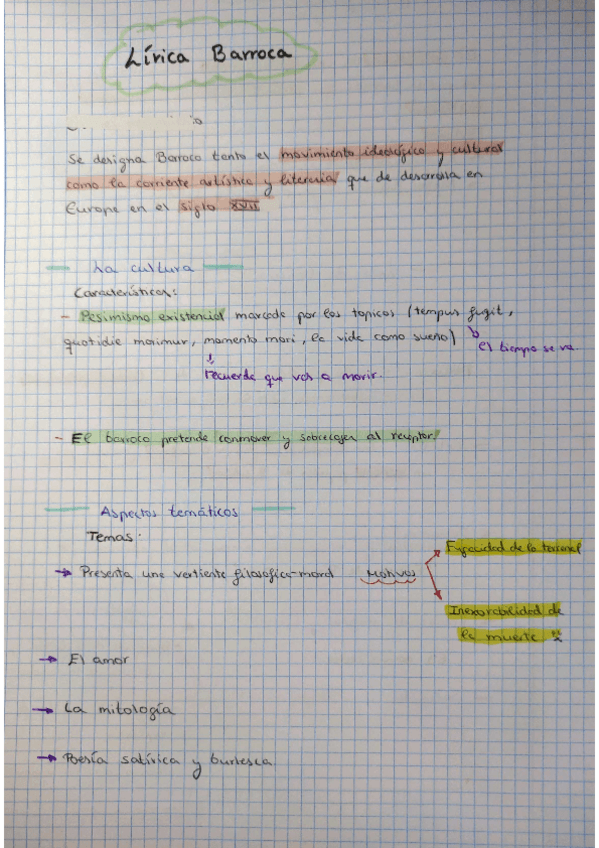 Lírica Barroca
Se designa Barroco tanto el movimiento ideológico y cultural
como la corriente artística y literaria que de desarrolla en
Europe en el siglo XVII
La cultura
Características:
- Pesimismo existencial marcado por los topicos (tempus fugit,
quotidie morimur, momento mori, la vida como sueño)
el tiempo se va
recuerda que vas a morir.
- El barroco pretende conmover y sobrecoger al receptor.
Aspectos temáticos
Temas:
→ Presenta une vertiente filosofica-moral Motivos
Fugacidad de lo terrenal
Inexorabilidad de
la muerte
→ El amor
→ La mitología
→ Poesía satírica y burlesca